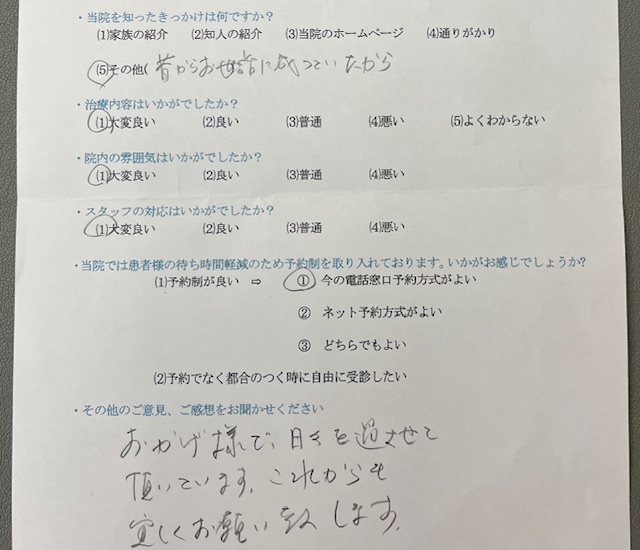 ・当院を知ったきっかけは何ですか?
(1)家族の紹介 (2)知人の紹介 (3)当院のホームページ (4)通りがかり
(5)その他( 昔からお世話に成っていたから
・治療内容はいかがでしたか?
(1)大変良い (2)良い (3)普通 (4)悪い (5)よくわからない
・院内の雰囲気はいかがでしたか?
(1)大変良い (2)良い (3)普通 (4)悪い
・スタッフの対応はいかがでしたか?
(1)大変良い (2)良い (3)普通 (4)悪い
・当院では患者様の待ち時間軽減のため予約制を取り入れております。いかがお感じでしょうか?
(1)予約制が良い ⇨ ① 今の電話窓口予約方式がよい
② ネット予約方式がよい
③ どちらでもよい
(2)予約でなく都合のつく時に自由に受診したい
・その他のご意見、ご感想をお聞かせください
おかげ様で、日々を過させて
頂いています。これからも
宜しくお願い致します。